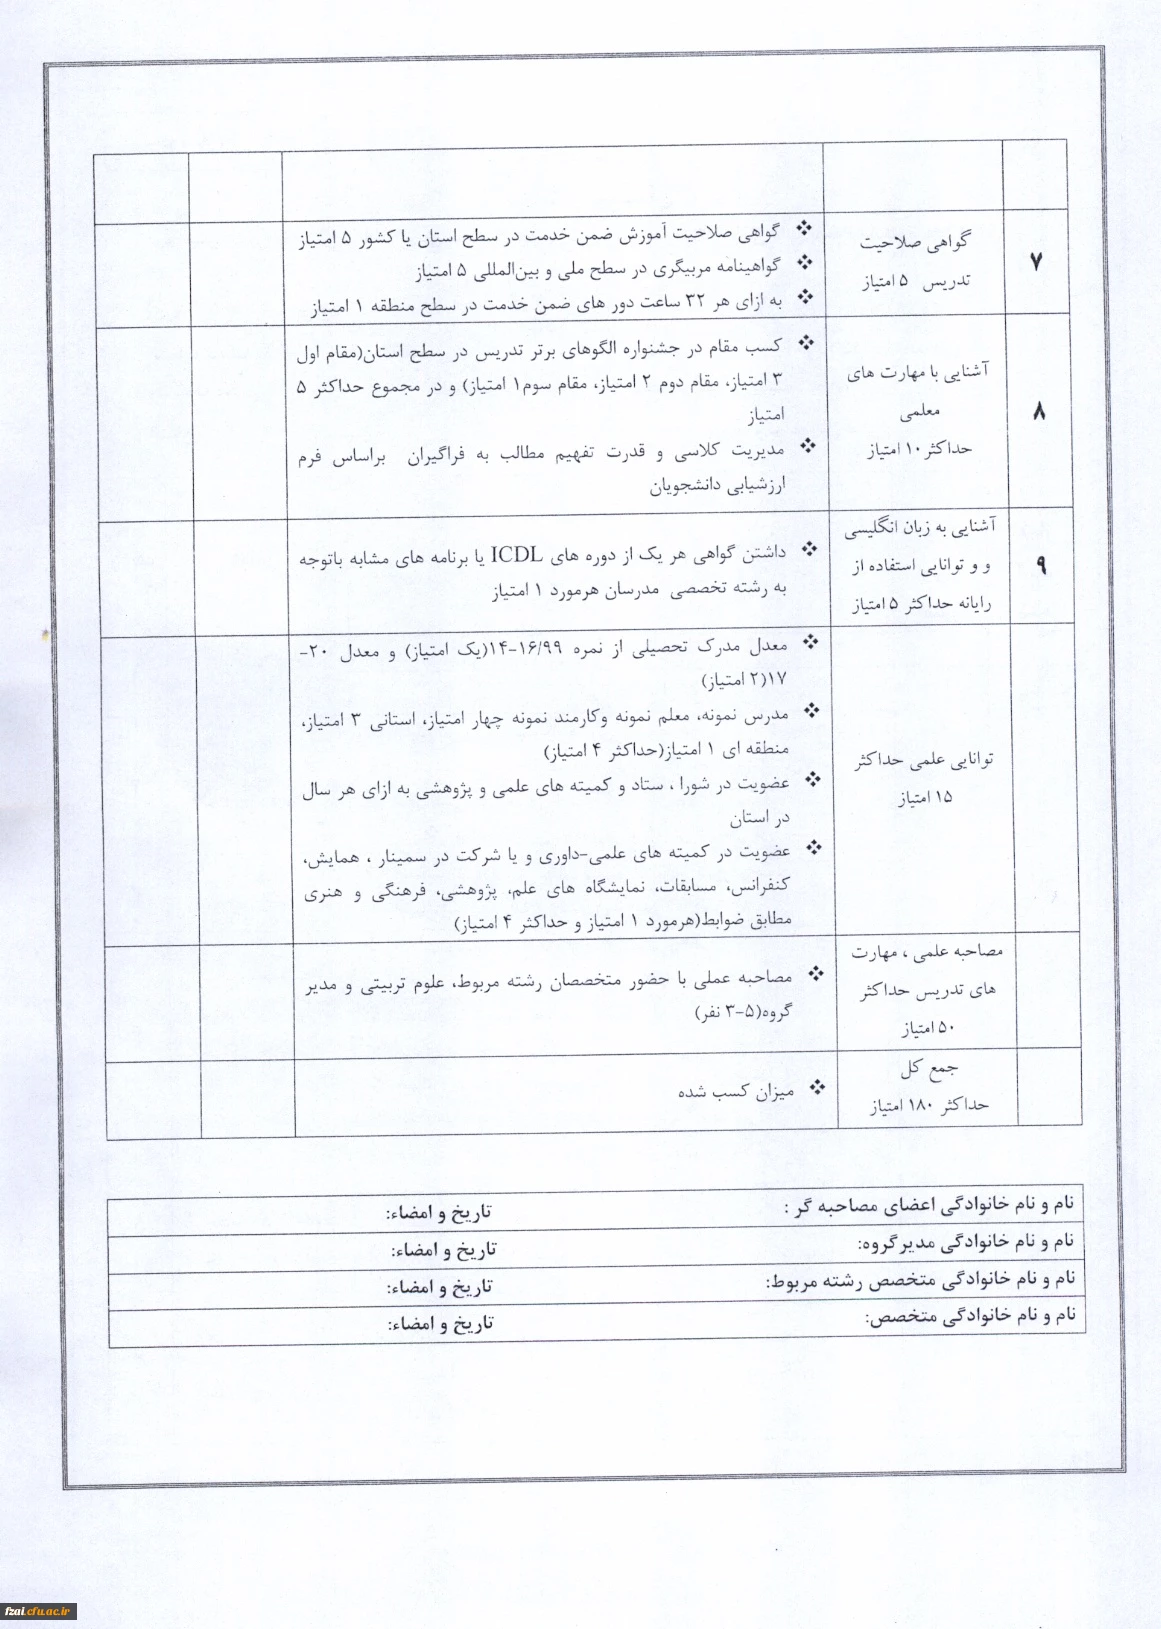 ۷
گواهی صلاحیت
تدریس ۵ امتیاز
گواهی صلاحیت آموزش ضمن خدمت در سطح استان یا کشور ۵ امتیاز
گواهینامه مربیگری در سطح ملی و بین‌المللی ۵ امتیاز
به ازای هر ۳۲ ساعت دور های ضمن خدمت در سطح منطقه ۱ امتیاز
۸
آشنایی با مهارت های
معلمی
حداکثر ۱۰ امتیاز
کسب مقام در جشنواره الگوهای برتر تدریس در سطح استان(مقام اول
۳ امتیاز، مقام دوم ۲ امتیاز، مقام سوم۱ امتیاز) و در مجموع حداکثر ۵
امتیاز
مدیریت کلاسی و قدرت تفهیم مطالب به فراگیران براساس فرم
ارزشیابی دانشجویان
۹
آشنایی به زبان انگلیسی
و و توانایی استفاده از
رایانه حداکثر ۵ امتیاز
داشتن گواهی هر یک از دوره های ICDL یا برنامه های مشابه باتوجه
به رشته تخصصی مدرسان هرمورد ۱ امتیاز
توانایی علمی حداکثر
۱۵ امتیاز
معدل مدرک تحصیلی از نمره ۱۶/۹۹-۱۴(یک امتیاز) و معدل ۲۰-
۱۷(۲ امتیاز)
مدرس نمونه، معلم نمونه وکارمند نمونه چهار امتیاز، استانی ۳ امتیاز،
منطقه ای ۱ امتیاز(حداکثر ۴ امتیاز)
عضویت در شورا ، ستاد و کمیته های علمی و پژوهشی به ازای هر سال
در استان
عضویت در کمیته های علمی-داوری و یا شرکت در سمینار ، همایش،
کنفرانس، مسابقات، نمایشگاه های علم، پژوهشی، فرهنگی و هنری
مطابق ضوابط(هرمورد ۱ امتیاز و حداکثر ۴ امتیاز)
مصاحبه علمی ، مهارت
های تدریس حداکثر
۵۰ امتیاز
مصاحبه عملی با حضور متخصصان رشته مربوط، علوم تربیتی و مدیر
گروه(۵-۳ نفر)
جمع کل
حداکثر ۱۸۰ امتیاز
میزان کسب شده
نام و نام خانوادگی اعضای مصاحبه گر : تاریخ و امضاء:
نام و نام خانوادگی مدیرگروه: تاریخ و امضاء:
نام و نام خانوادگی متخصص رشته مربوط: تاریخ و امضاء:
نام و نام خانوادگی متخصص: تاریخ و امضاء:
fzai.cfu.ac.ir